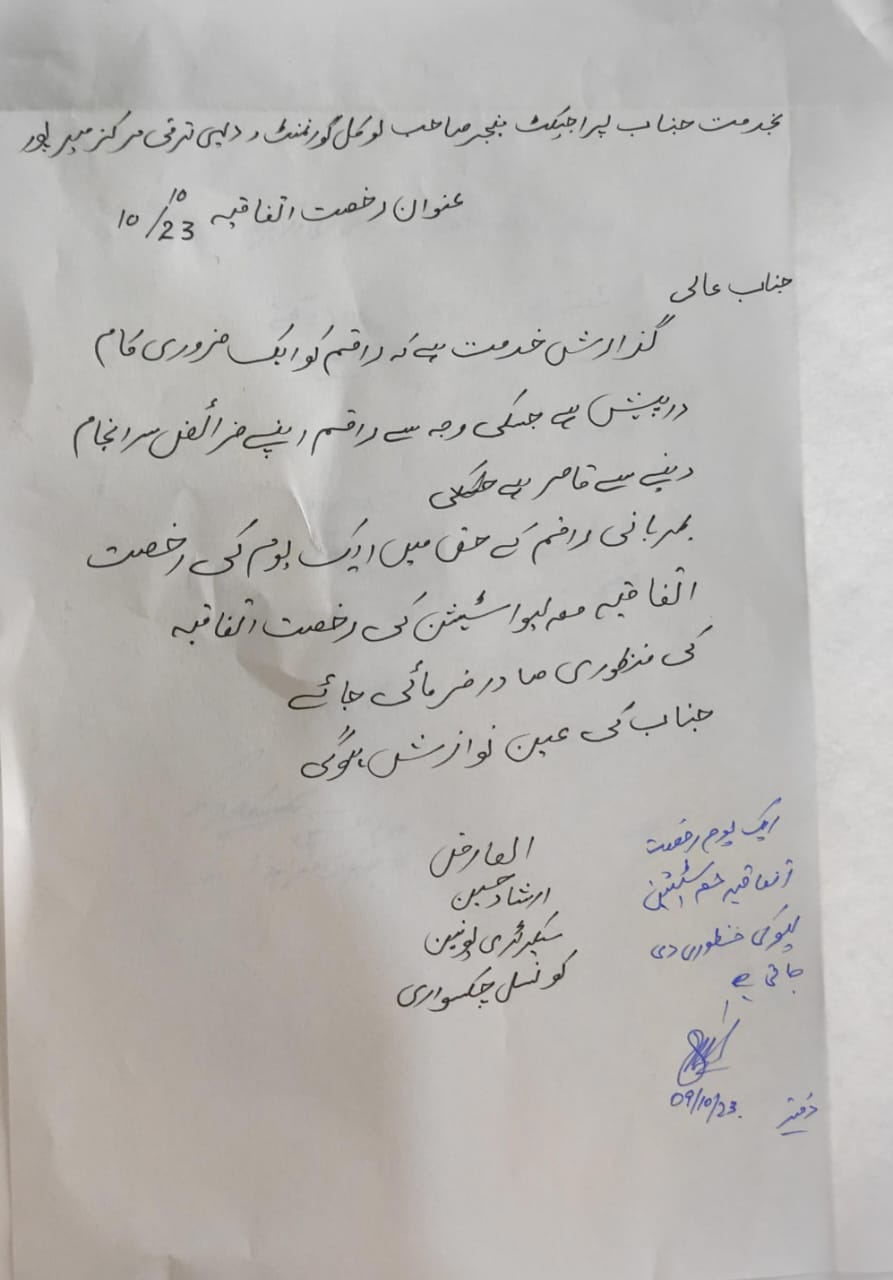 بخدمت جناب پراجیکٹ منیجر صاحب لوکل گورنمنٹ و دیہی ترقی مرکز میرپور
عنوان رخصت اتفاقیہ 10/10/23
جناب عالی
گذارش خدمت ہے کہ راقم کو ایک ضروری کام
درپیش ہے جسکی وجہ سے راقم اپنے فرائض سرانجام
دینے سے قاصر ہے
بمہربانی راقم کے حق میں ایک یوم کی رخصت
اتفاقیہ معہ لیواسٹیشن کی رخصت اتفاقیہ
کی منظوری صادر فرمائی جائے
جناب کی عین نوازش ہوگی
العارض
ارشاد حسین
سیکرٹری یونین
کونسل چکسواری
ایک یوم رخصت
اتفاقیہ معہ اسٹیشن
لیو کی منظوری دی
جاتی ہے
09/10/23.
دفتر